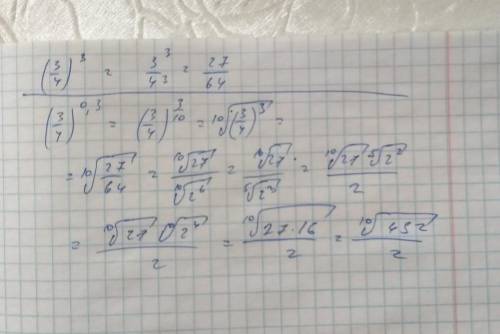 (3/4)^3 = 3^3/4^3 = 27/64
(3/4)^0,3 = (3/4)^3/10 = ¹⁰√(3/4)^3 =
= ¹⁰√27/64 = ¹⁰√27/¹⁰√2^6 = ¹⁰√27/⁵√2^3 = ¹⁰√27 ⁵√2^2/2
= ¹⁰√27 ¹⁰√2^4/2 = ¹⁰√27·16/2 = ¹⁰√432/2